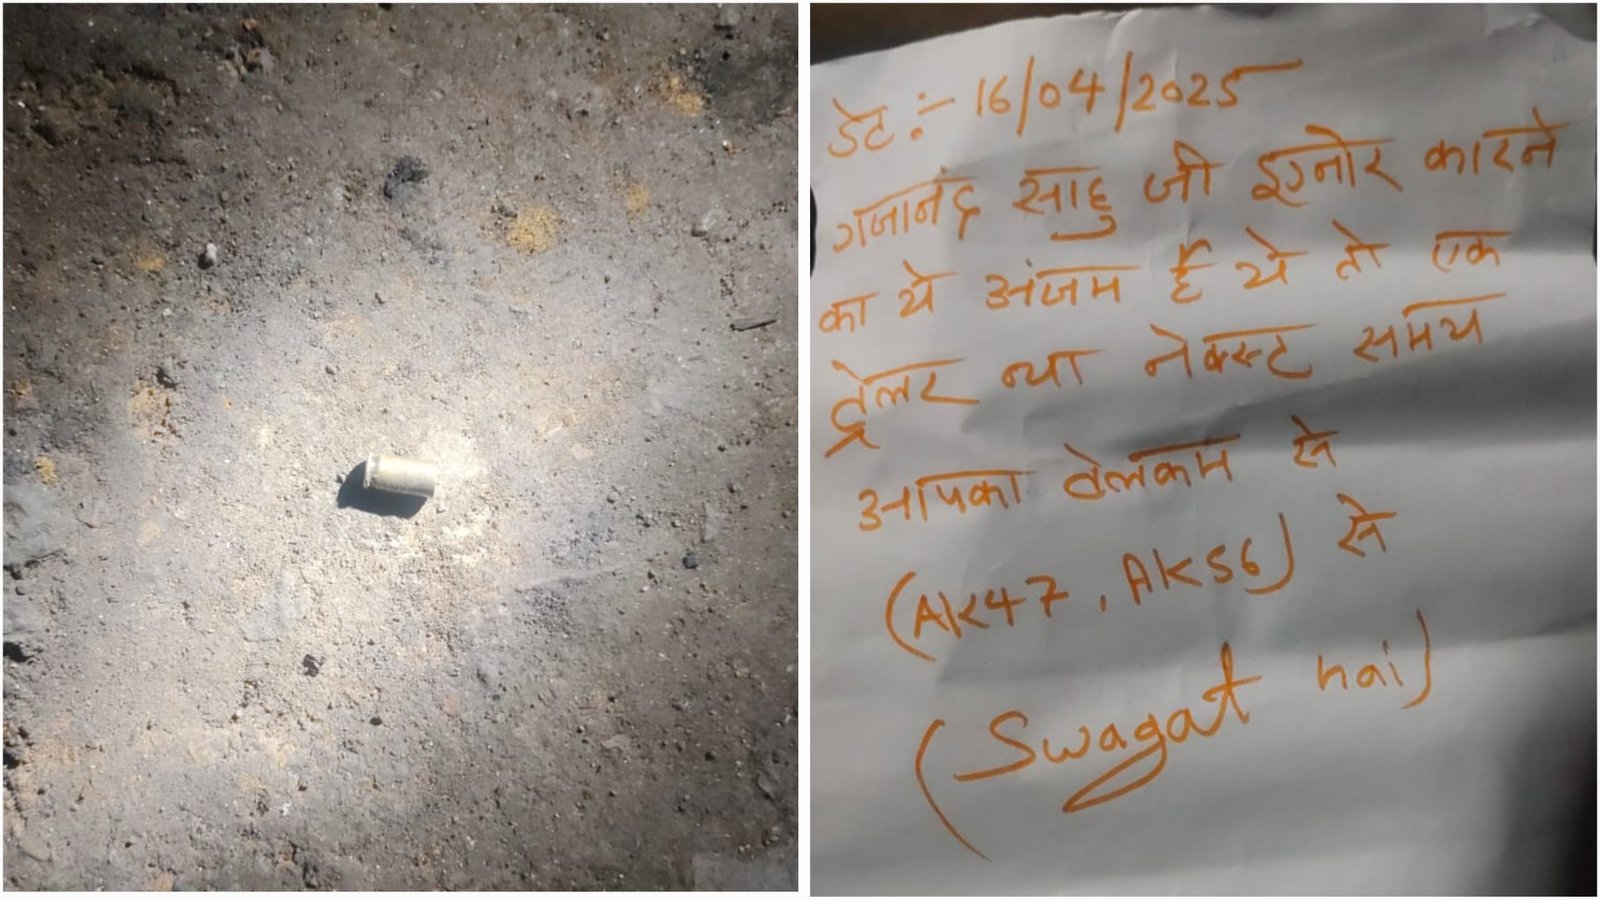 डेट :- 16/04/2025
गजानंद्र साहु जी इग्नोर कारने
का ये अंजम हैं ये तो एक
ट्रेलर था नेक्स्ट समय
आपका वेलकम से
(AK47, AK56) से
(Swagat hai)